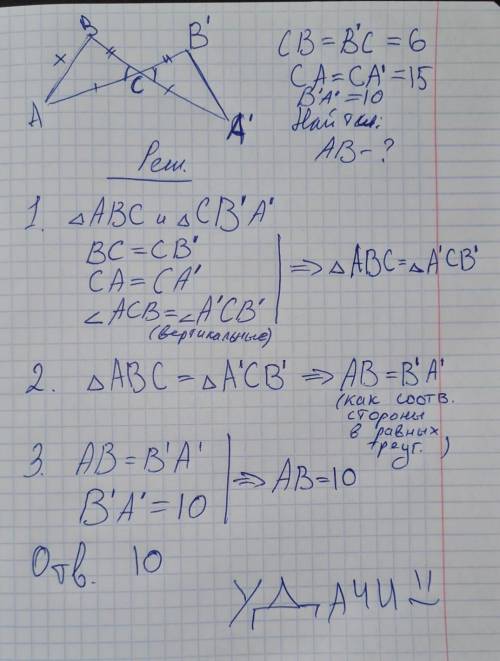 B
B'
C
A
A'
CB = B'C = 6
CA = CA' = 15
B'A' = 10
Найти:
AB - ?
Реш.
1. △ABC и △CB'A'
BC = CB'
CA = CA'
∠ACB = ∠A'CB'
(вертикальные)
⇒ △ABC = △A'CB'
2. △ABC = △A'CB' ⇒ AB = B'A'
(как соотв.
стороны
в равных
треуг.)
3. AB = B'A'
B'A' = 10
⇒ AB = 10
Отв. 10
УДАЧИ